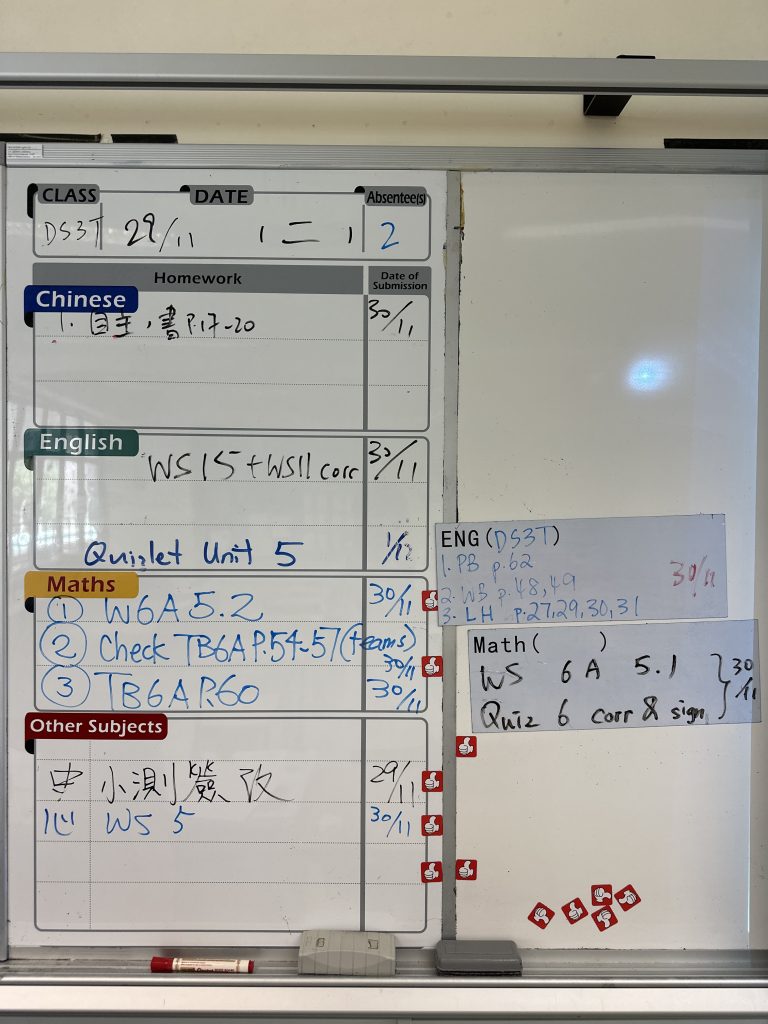 CLASS DATE Absentee(s)
DS3T 29/11 (二) 2
Homework Date of Submission
Chinese
1. 自主,書 P.17-20 30/11
English
WS15 + WS11 corr 30/11
Quizlet Unit 5 1/12
Maths
① W6A 5.2 30/11
② Check TB6A P.54-57 (teams) 30/11
③ TB6A P.60 30/11
Other Subjects
小測簽改 29/11
心 WS 5 30/11
ENG(DS3T)
1. PB p.62
2. WB p.48,49 30/11
3. LH p.27,29,30,31
Math( )
WS 6A 5.1 } 30/11
Quiz 6 corr & sign